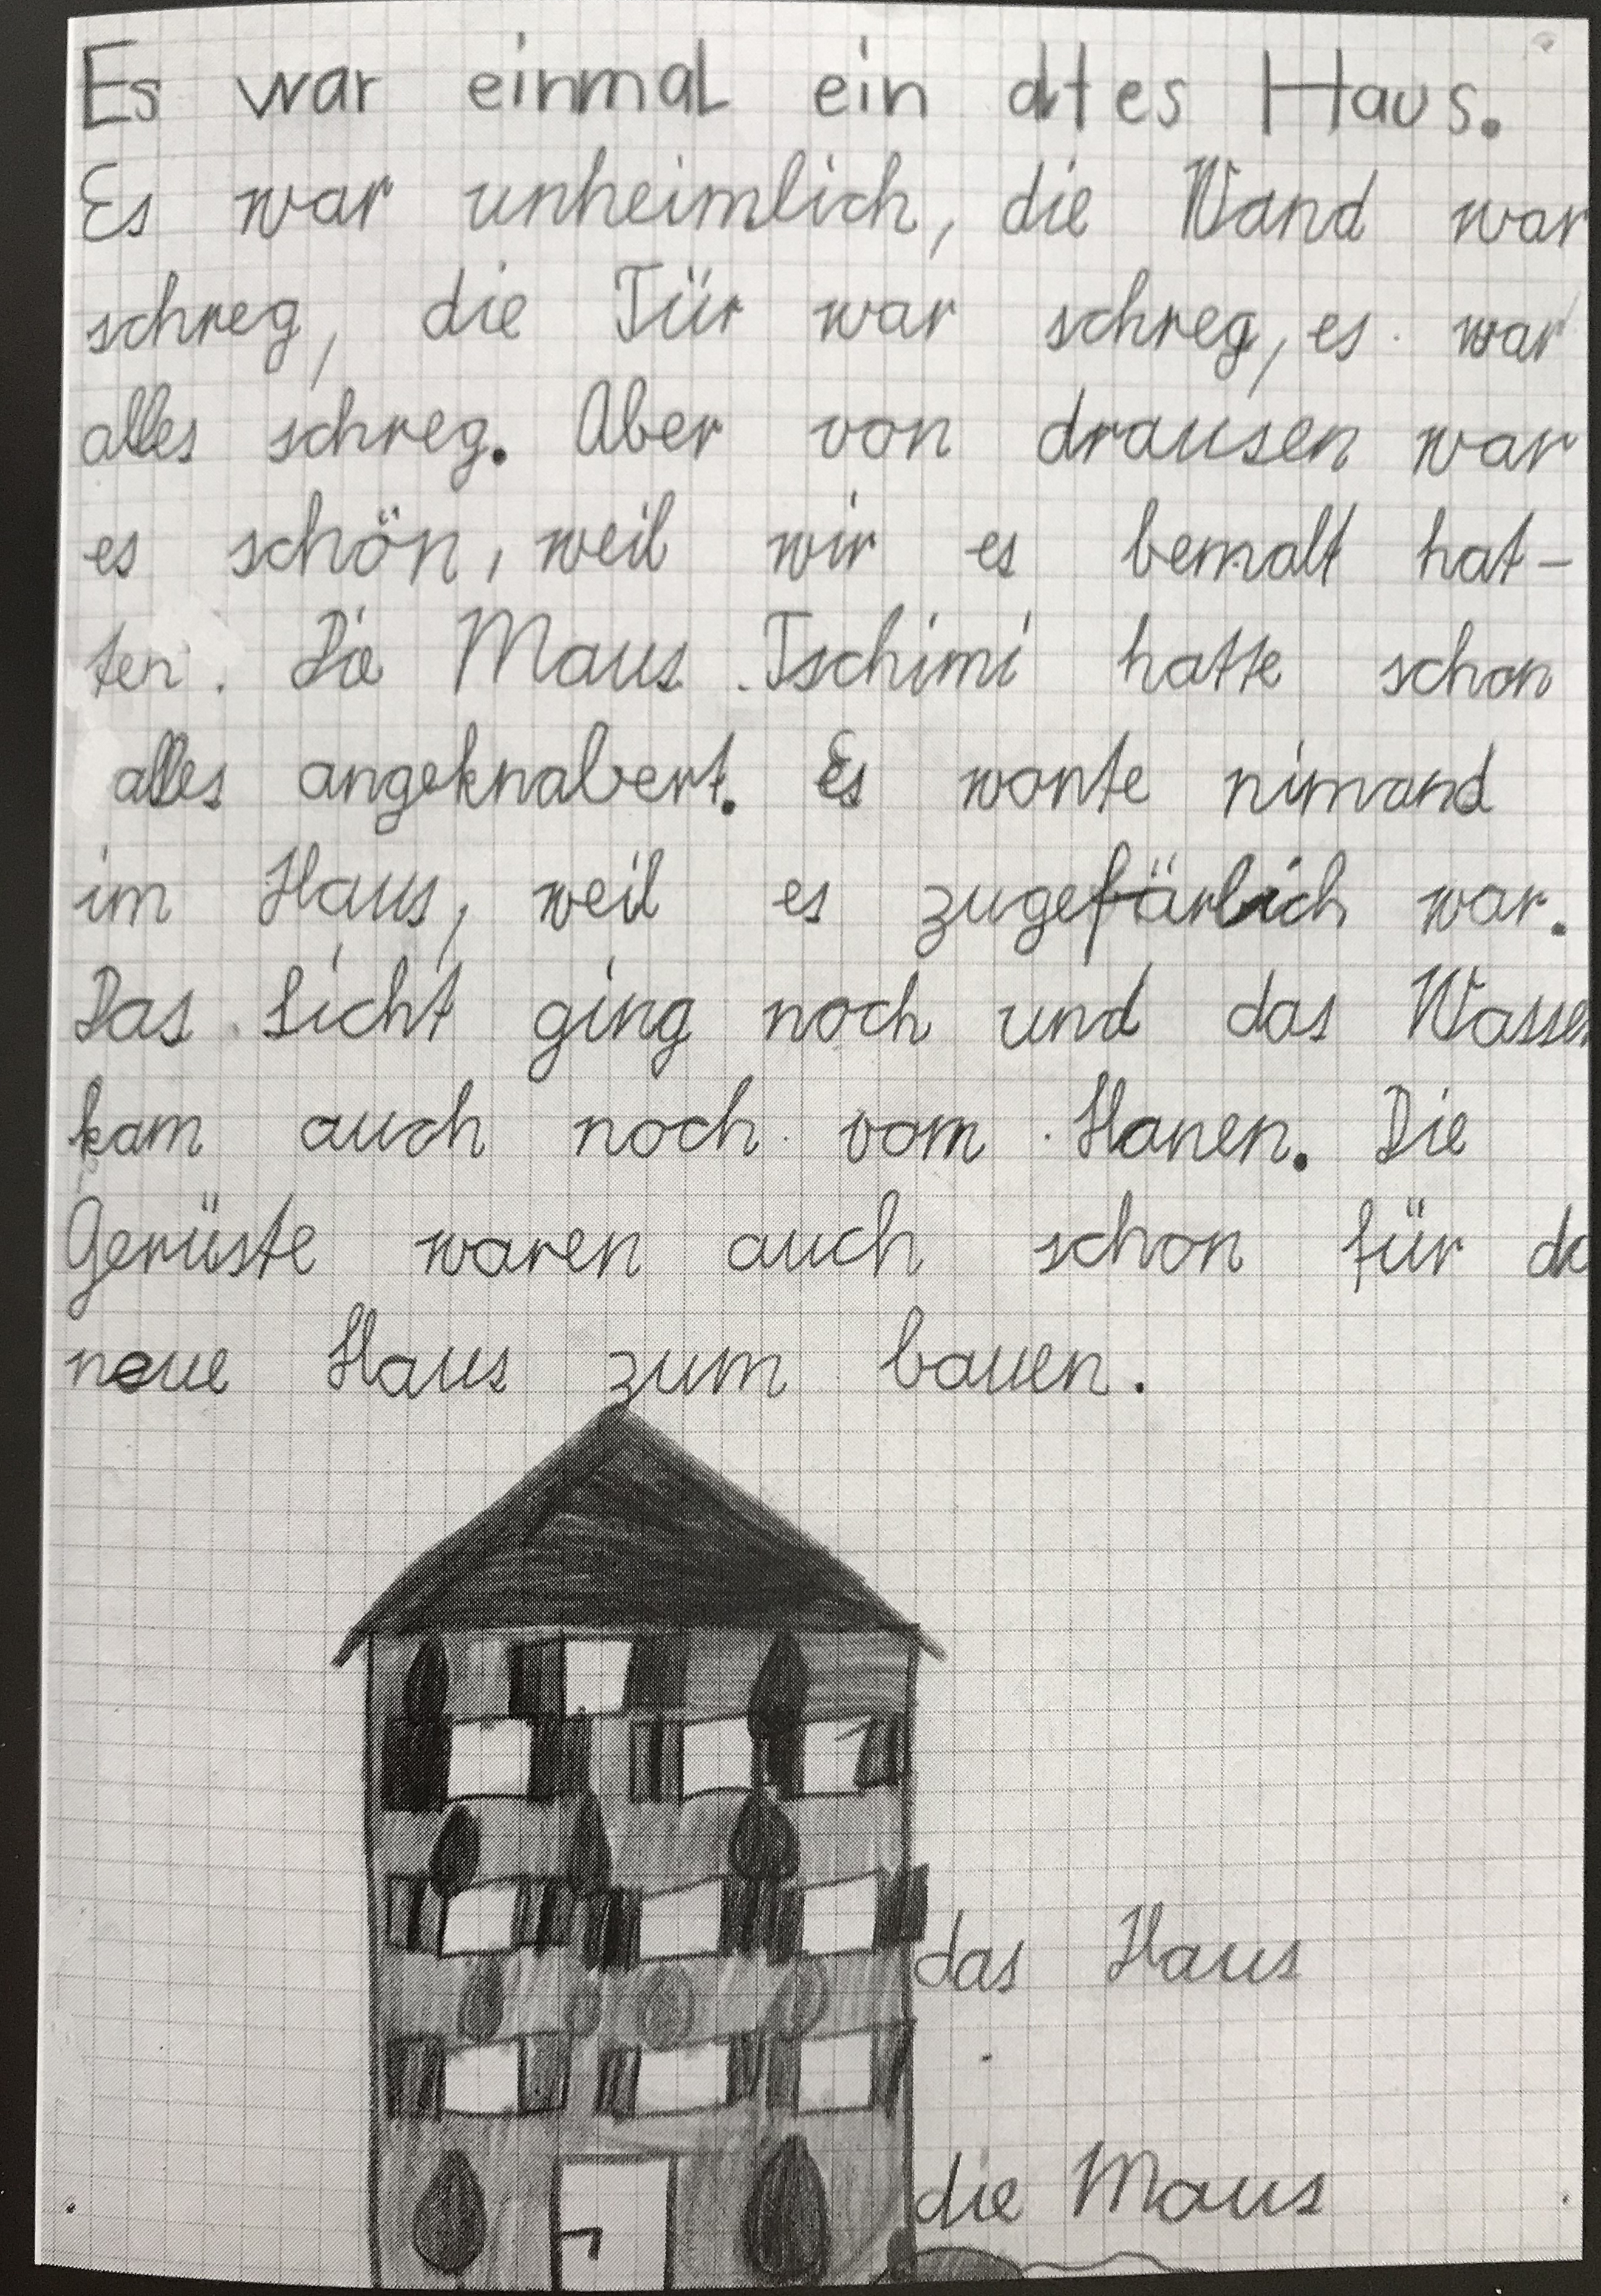 Es war einmal ein altes Haus.
Es war unheimlich, die Wand war
schreg, die Tür war schreg, es war
alles schreg. Aber von drausen war
es schön, weil wir es bemalt hat-
ten. Die Maus Tschimi hatte schon
alles angeknabert. Es wonte nimand
im Haus, weil es zugefärlich war.
Das Licht ging noch und das Wasser
kam auch noch vom Hanen. Die
Gerüste waren auch schon für da
neue Haus zum bauen.
das Haus
die Maus